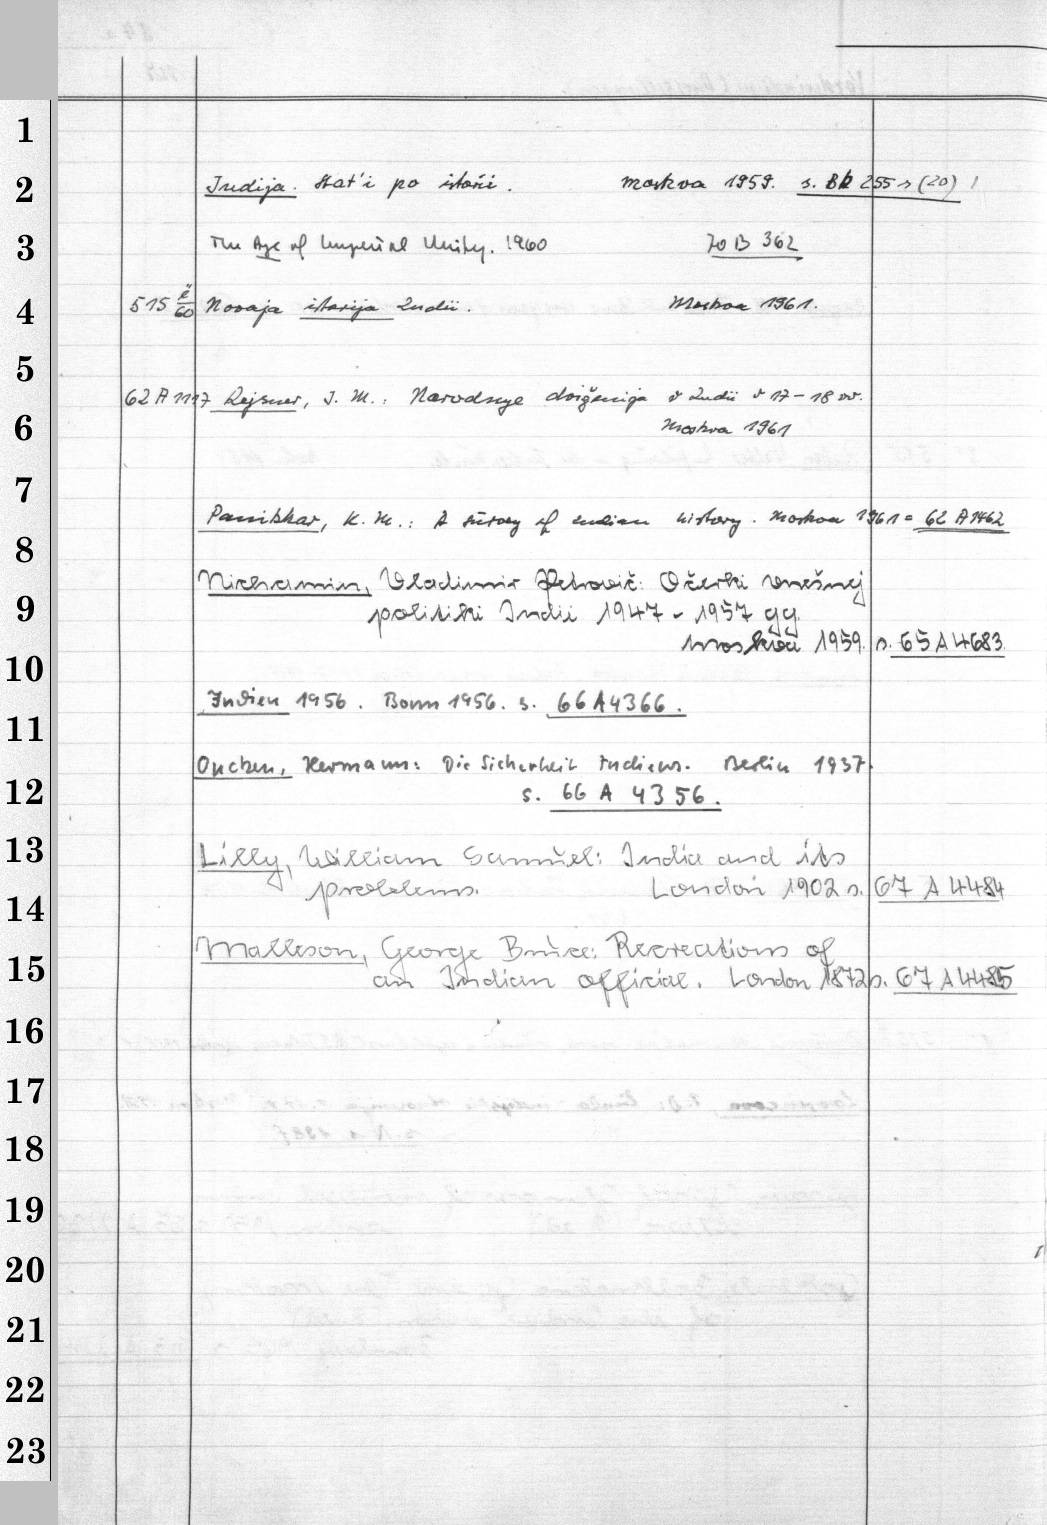 1
2
Indija. Stat'i po istorii. Moskva 1959. s. Bk 255 s (20)
3
The Age of Imperial Unity. 1960 70 B 362
4
515 ě/60 Novaja istorija Indii. Moskva 1961.
5
62 A 1117 Rejsner, I. M.: Narodnye dviženija v Indii v 17-18 vv.
6
Moskva 1961
7
Panikkar, K. M.: A survey of Indian history. Moskva 1961 = 62 A 1462
8
Nichamin, Vladimir Petrovič: Očerki vnešnej
9
politiki Indii 1947-1957 gg.
Moskva 1959. s. 65 A 4683
10
Indien 1956. Bonn 1956. s. 66 A 4366.
11
Oncken, Hermann: Die Sicherheit Indiens. Berlin 1937.
12
s. 66 A 4356.
13
Lilly, William Samuel: India and its
14
problems. London 1902 s. 67 A 4484
Malleson, George Bruce: Recreations of
15
an Indian official. London 1872 s. 67 A 4485
16
17
18
19
20
21
22
23